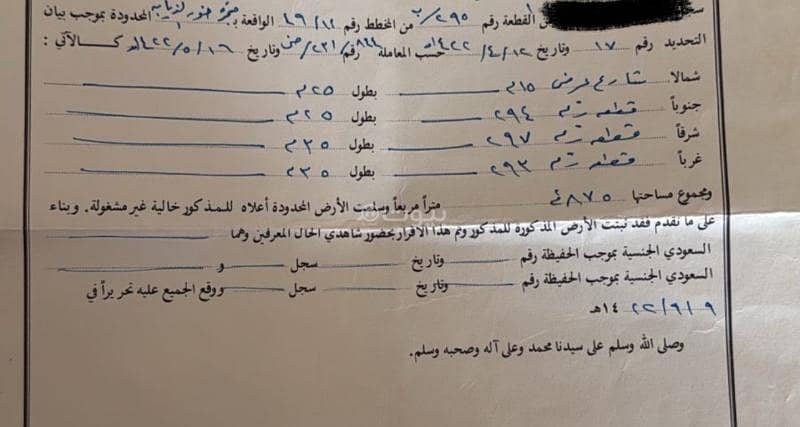 القطعة رقم ٢٩٥/ب من المخطط رقم ٤٩/١١ الواقعة بـ المحدودة بموجب بيان
التحديد رقم ١٧ وتاريخ ١٢/٤/١٤٢٢هـ حسب المعاملة رقم وتاريخ ١٦/٥/١٤٢٢هـ كالآتي :
شمالاً شارع عرض ١٥م بطول ٢٥م
جنوباً قطعه رقم ٢٩٤ بطول ٢٥م
شرقاً قطعه رقم ٢٩٧ بطول ٣٥م
غرباً قطعه رقم ٢٩٣ بطول ٣٥م
ومجموع مساحتها ٨٧٥م متراً مربعاً وسلمت الأرض المحدودة أعلاه للمذكور خالية غير مشغولة. وبناء
على ما تقدم فقد ثبتت الأرض المذكورة للمذكور وتم هذا الاقرار بحضور شاهدي الحال المعرفين وهما
السعودي الجنسية بموجب الحفيظة رقم وتاريخ سجل و
السعودي الجنسية بموجب الحفيظة رقم وتاريخ سجل ووقع الجميع عليه تحريراً في
٩/٩/١٤٢٢هـ
وصلى الله وسلم على سيدنا محمد وعلى آله وصحبه وسلم.
بيوت